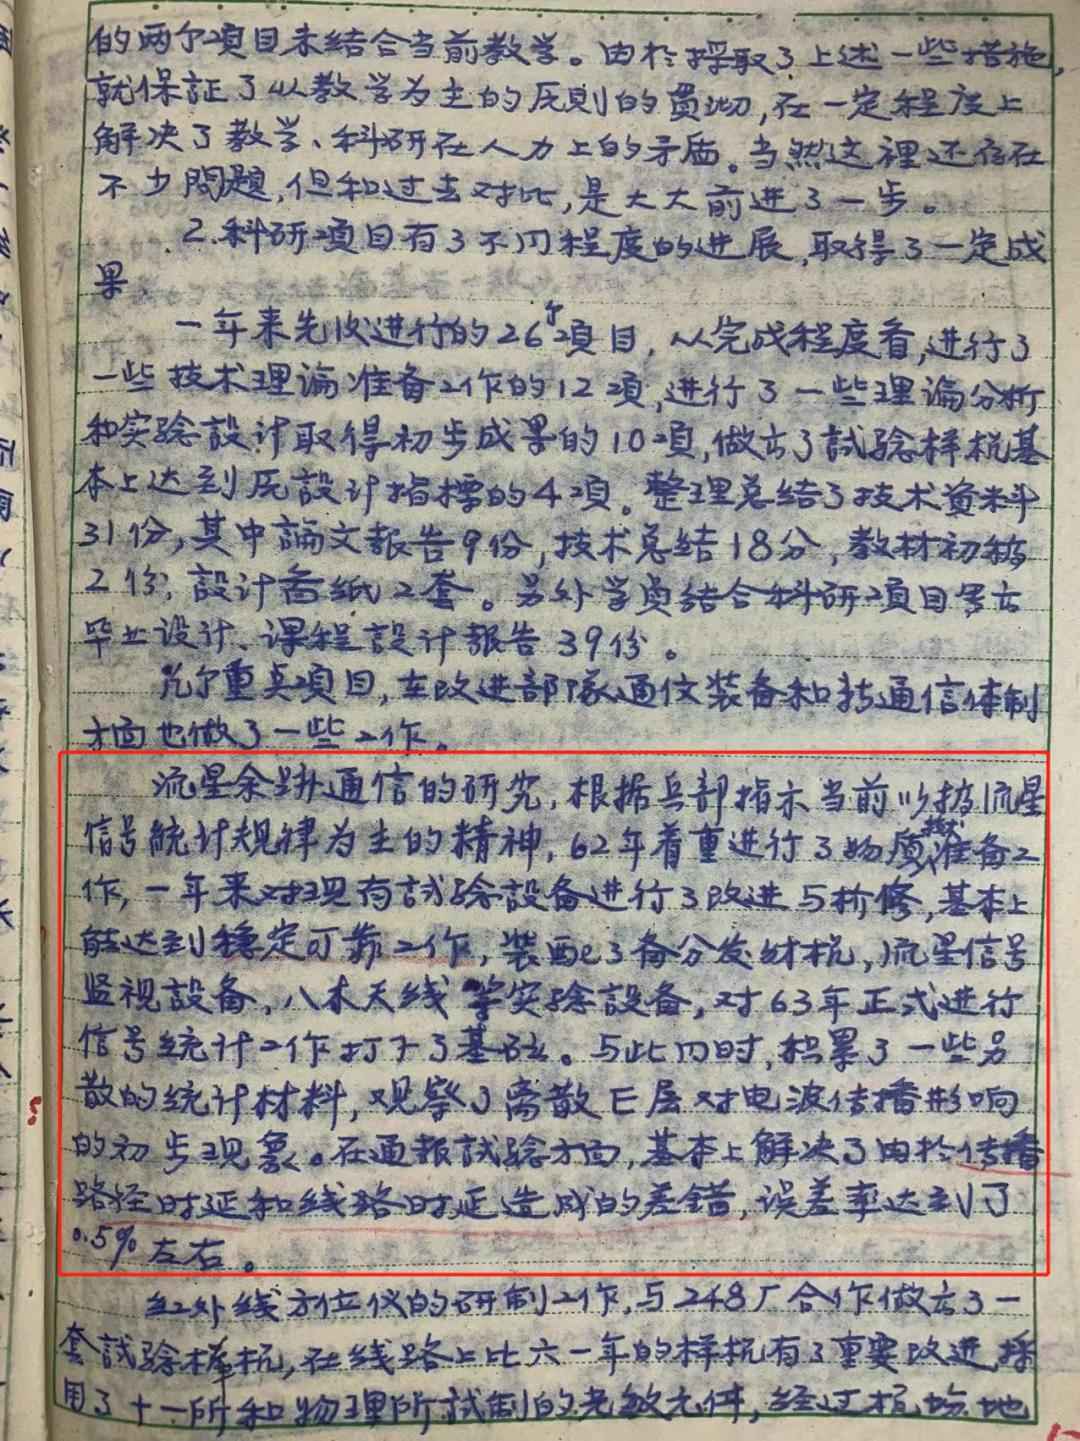 的两个項目未结合当前教学。由於採取了上述一些措施,
就保証了以教学为主的原則的贯彻,在一定程度上
解决了教学、科研在人力上的矛盾。当然这裡还存在
不少問題,但和过去对比,是大大前进了一步。
2.科研項目有了不同程度的进展,取得了一定成
果.
一年来先后进行的26个項目,从完成程度看,进行了
一些技术理論准备工作的12項,进行了一些理論分析
和实验設计取得初步成果的10項,做出了試验样机基
本上达到原設计指標的4項。整理总结了技术資料
31份,其中論文報告9份,技术总结18分,教材初稿
2份,設计畨纸2套。另外学員结合科研項目写出
毕业设计、课程設计報告39份。
几个重点項目,在改进部隊通信装备和技通信体制
方面也做了一些工作。
流星余跡通信的研究,根据兵部指示当前以搞流星
信号統计规律为主的精神,62年着重进行了物质技术准备工
作,一年来对现有試验設备进行了改进与折修,基本上
能达到稳定可靠工作,装配了备分发射机,流星信号
监视設备,八木天线等实验設备,对63年正式进行
信号统计工作打下了基础。与此同时,积累了一些另
散的统计材料,观察了离散E层对电波传播影响
的初步现象。在通報試验方面,基本上解决了由於传播
路径时延和线路时延造成的差错,误差率达到了
0.5%左右。
红外线方位仪的研制工作,与248厂合作做出了一
套試验样机,在线路上比六一年的样机有了重要改进,採
用了十一所和物理所試制的光敏元件,经过机场地